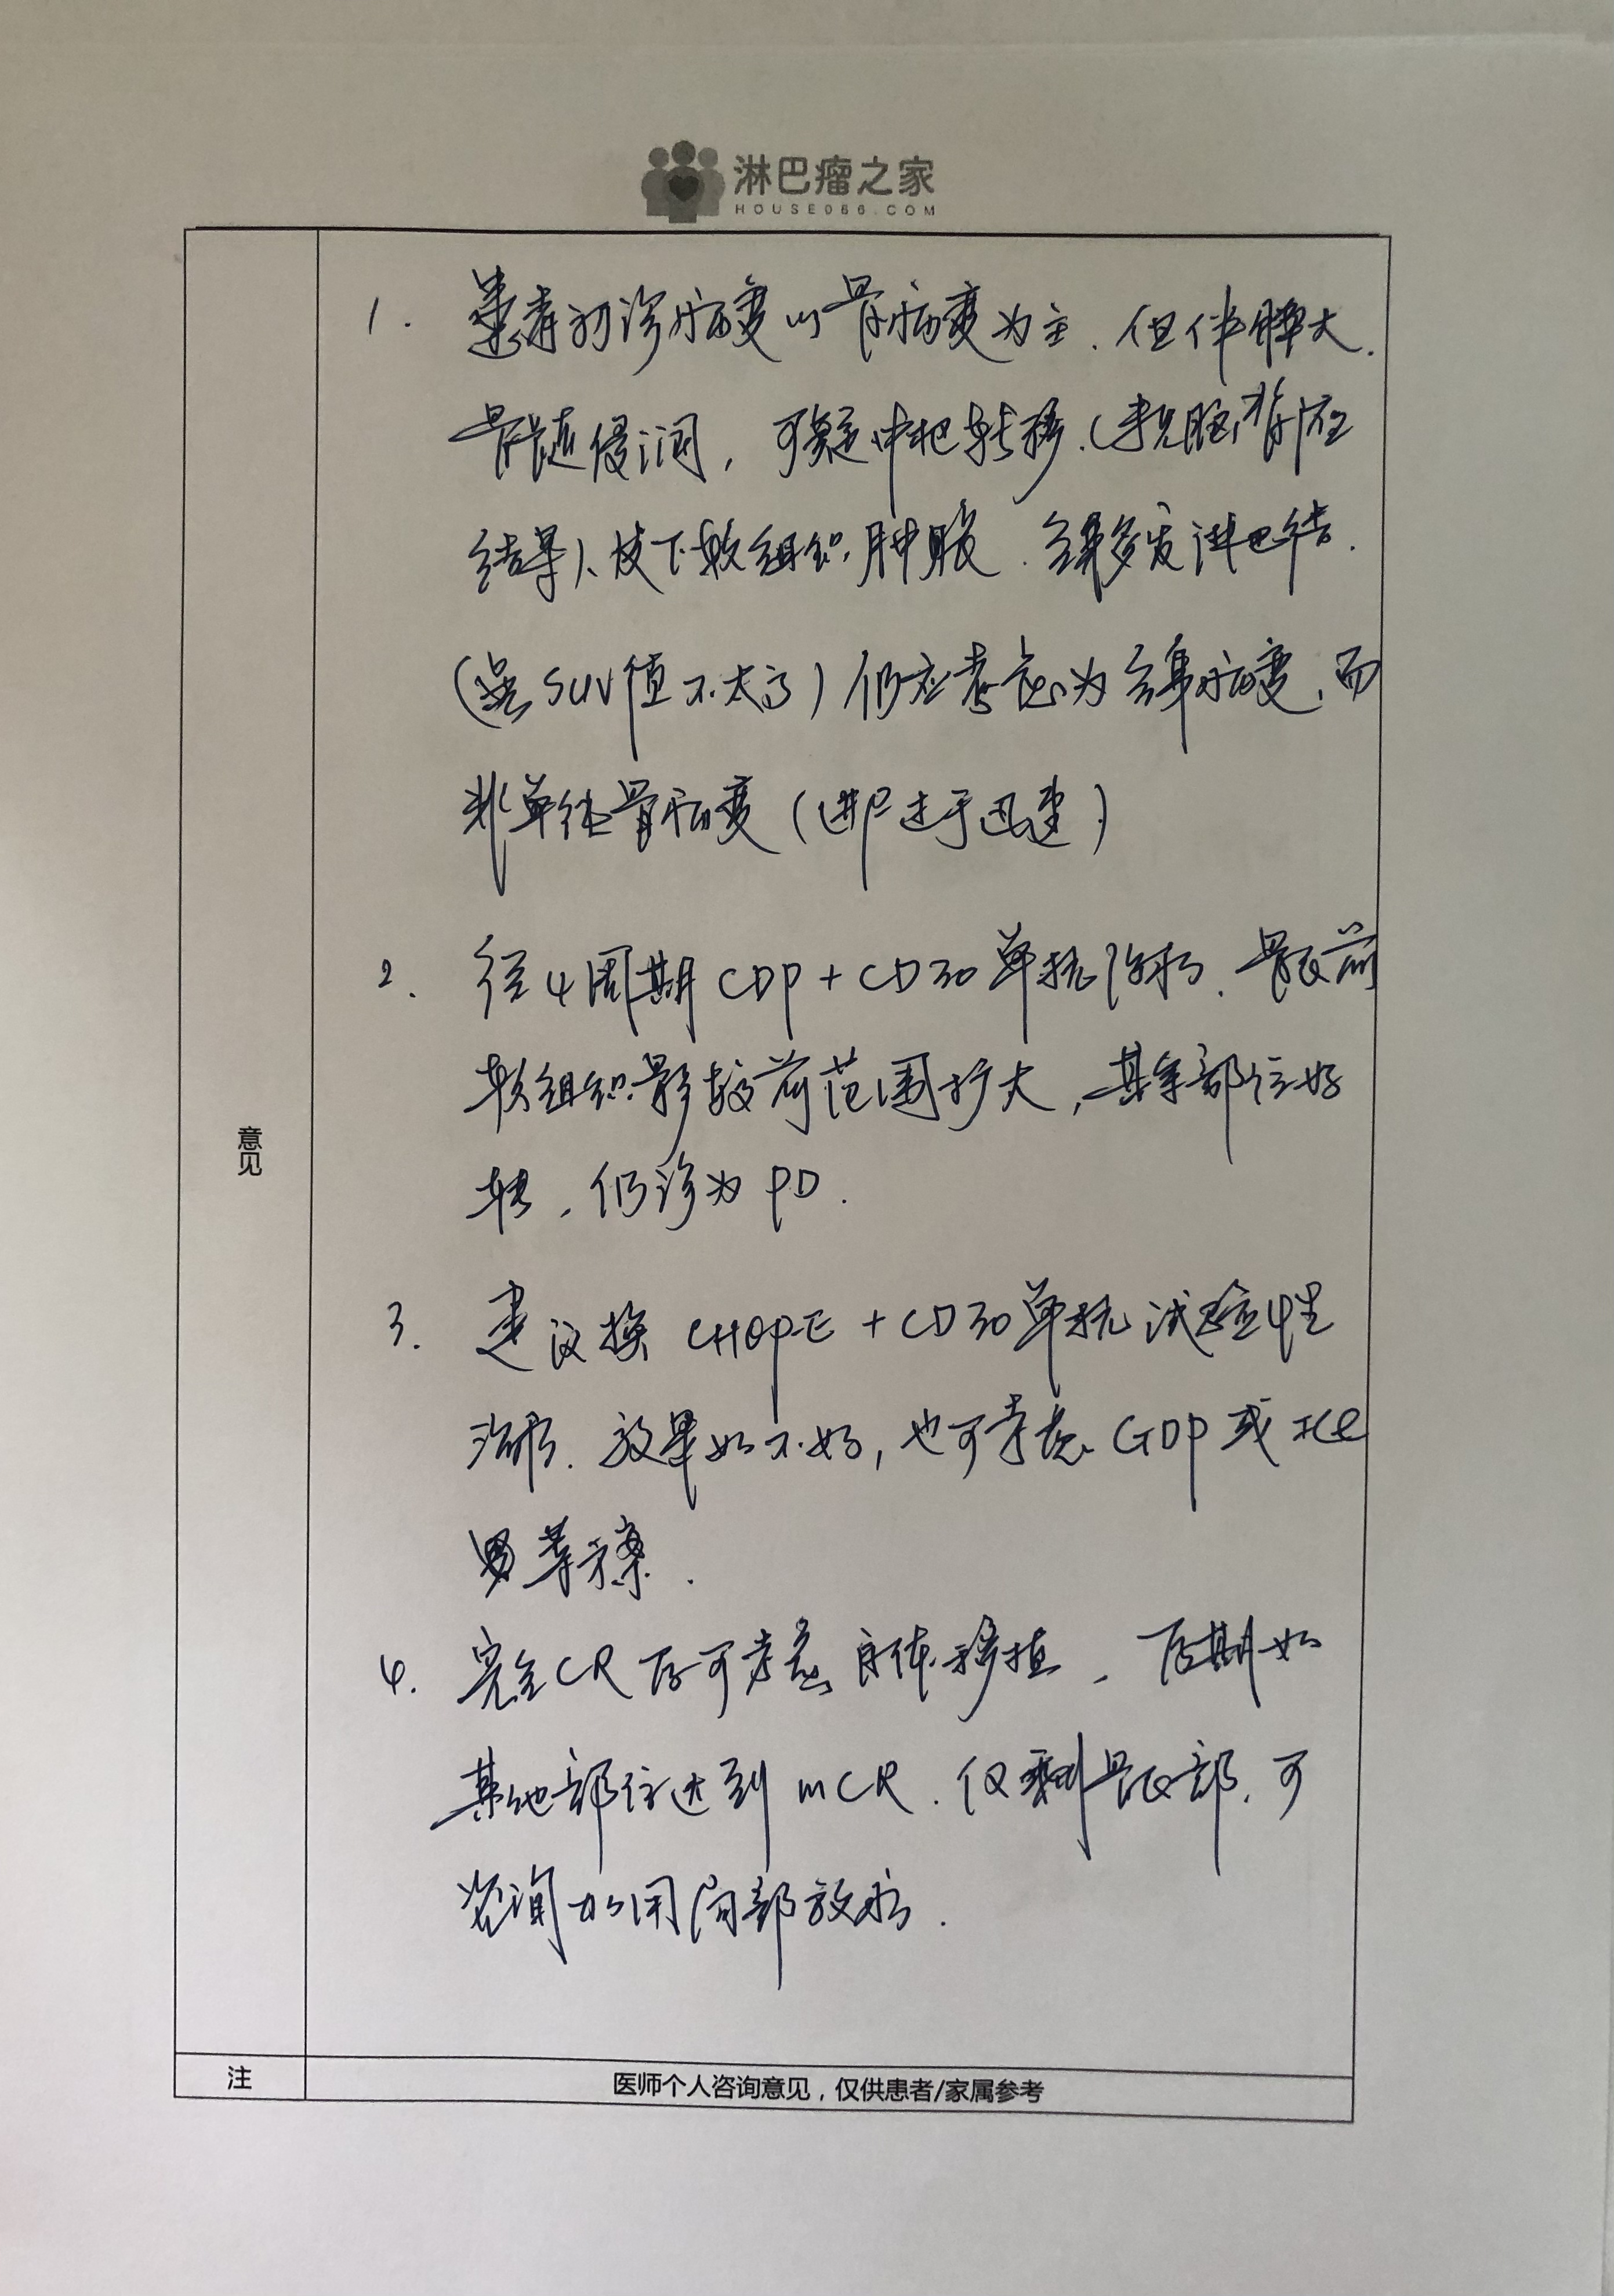 淋巴瘤之家
HOUSE086.COM
意见
1. 患者初诊病变以骨病变为主.但伴脾大.
骨髓侵润,可疑中枢转移.(未见脑脊液
结果)、皮下软组织肿胀.全身多发淋巴结.
(虽SUV值不太高)仍应考虑为全身病变,而
非单纯骨病变(进户过于迅速)
2. 经4周期CDP+CD30单抗治疗.骶前
软组织影较前范围扩大,其余部位好
转,仍诊为PD.
3. 建议换CHOPE+CD30单抗试验性
治疗.效果如不好,也可考虑GDP或ICE
等方案.
4. 完全CR后可考虑自体移植,后期如
其他部位达到mCR.仅剩骶部,可
咨询加用局部放疗.
注
医师个人咨询意见,仅供患者/家属参考